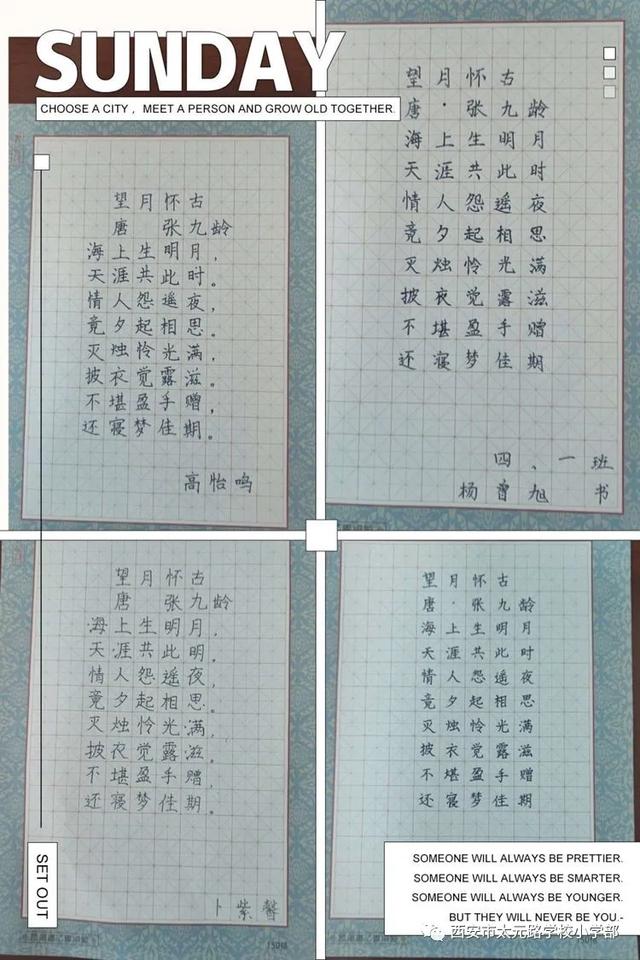 SUNDAY
CHOOSE A CITY , MEET A PERSON AND GROW OLD TOGETHER.
望月怀古
唐 张九龄
海上生明月，
天涯共此时。
情人怨遥夜，
竟夕起相思。
灭烛怜光满，
披衣觉露滋。
不堪盈手赠，
还寝梦佳期。
高怡鸣
望月怀古
唐·张九龄
海上生明月
天涯共此时
情人怨遥夜
竟夕起相思
灭烛怜光满
披夜觉露滋
不堪盈手赠
还寝梦佳期
四、一班
杨曾旭 书
望月怀古
唐 张九龄
海上生明月，
天涯共此明。
情人怨遥夜，
竟夕起相思。
灭烛怜光满，
披衣觉露滋。
不堪盈手赠，
还寝梦佳期。
卜紫馨
望月怀古
唐·张九龄
海上生明月
天涯共此时
情人怨遥夜
竟夕起相思
灭烛怜光满
披衣觉露滋
不堪盈手赠
还寝梦佳期
SET OUT
SOMEONE WILL ALWAYS BE PRETTIER.
SOMEONE WILL ALWAYS BE SMARTER.
SOMEONE WILL ALWAYS BE YOUNGER.
BUT THEY WILL NEVER BE YOU.-
西安市太元路学校小学部